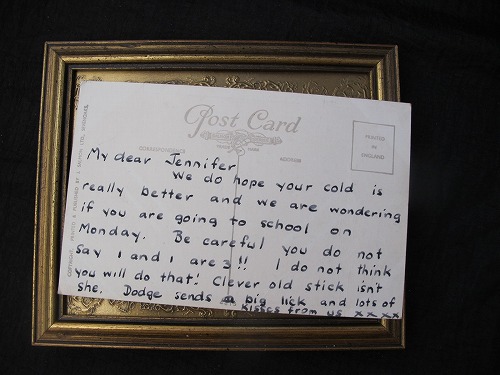 Post Card
CORRESPONDENCE
TRADE MARK
ADDRESS
PRINTED
IN
ENGLAND
COPYRIGHT. PRINTED & PUBLISHED BY J. SALMON LTD. SEVENOAKS
My dear Jennifer
We do hope your cold is
really better and we are wondering
if you are going to school on
Monday. Be careful you do not
say 1 and 1 are 3!! I do not think
you will do that! Clever old stick isn't
she. Dodge sends a big lick and lots of
kisses from us x x x x